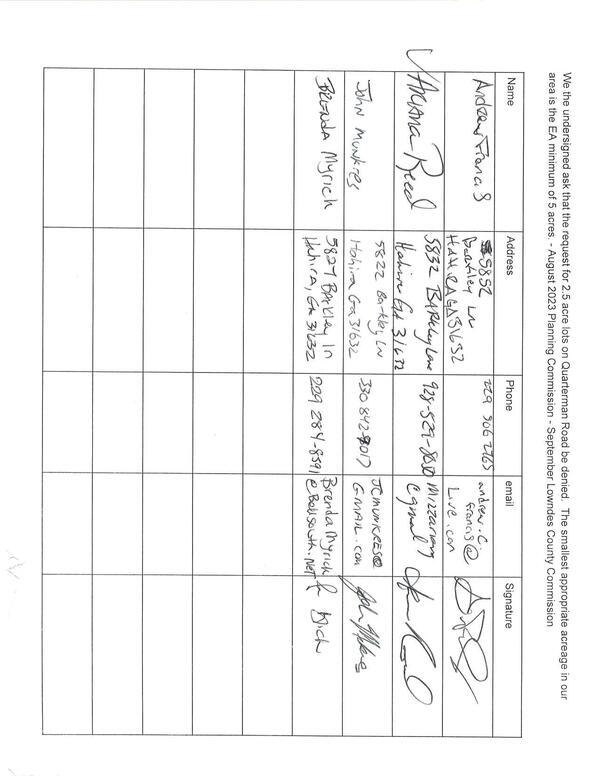 We the undersigned ask that the request for 2.5 acre lots on Quarterman Road be denied. The smallest appropriate acreage in our
area is the EA minimum of 5 acres. - August 2023 Planning Commission - September Lowndes County Commission
Name Address Phone email Signature
Andrew Francis 5852 Barkley Ln HAHIRA GA 31632 229 506 2765 andrew.c.francis@live.com
ARIANA Reed 5832 BARKley Lane Hahira Ga 31632 928-529-8050
John Munkres 5822 Barkley Ln Hahira Ga 31632 330 842-8017 JCMUNKRES@GMAIL.com
BRENDA Myrick 5827 Barkley ln Hahira, Ga 31632 229 284-8591 Brenda Myrick@Bellsouth.Net